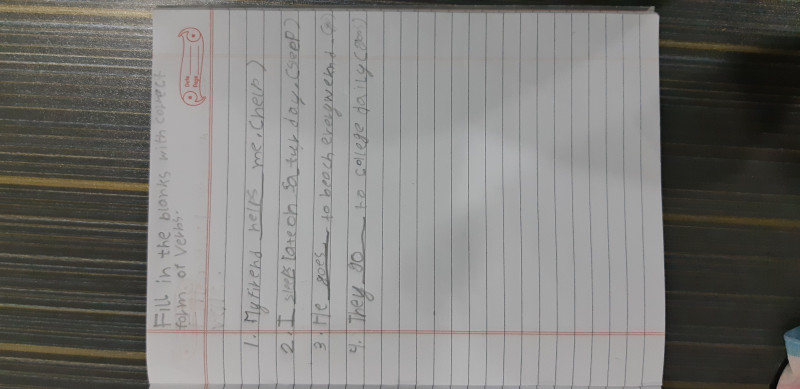 Fill in the blanks with correct
form of Verbs.
Date
Page
1. My friend helps me. (help)
2. I sleeps late on Saturday. (sleep)
3. He goes to beach every weekend (go)
4. They go to college daily (goes)